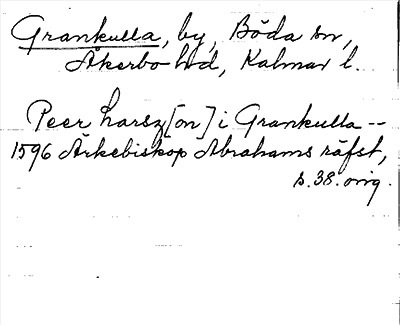 Grankulla, by, Böda sn,
Åkerbo hd, Kalmar l.
Peer Larsz[on] i Grankulla --
1596 Ärkebiskop Abrahams räfst,
s. 38. orig.